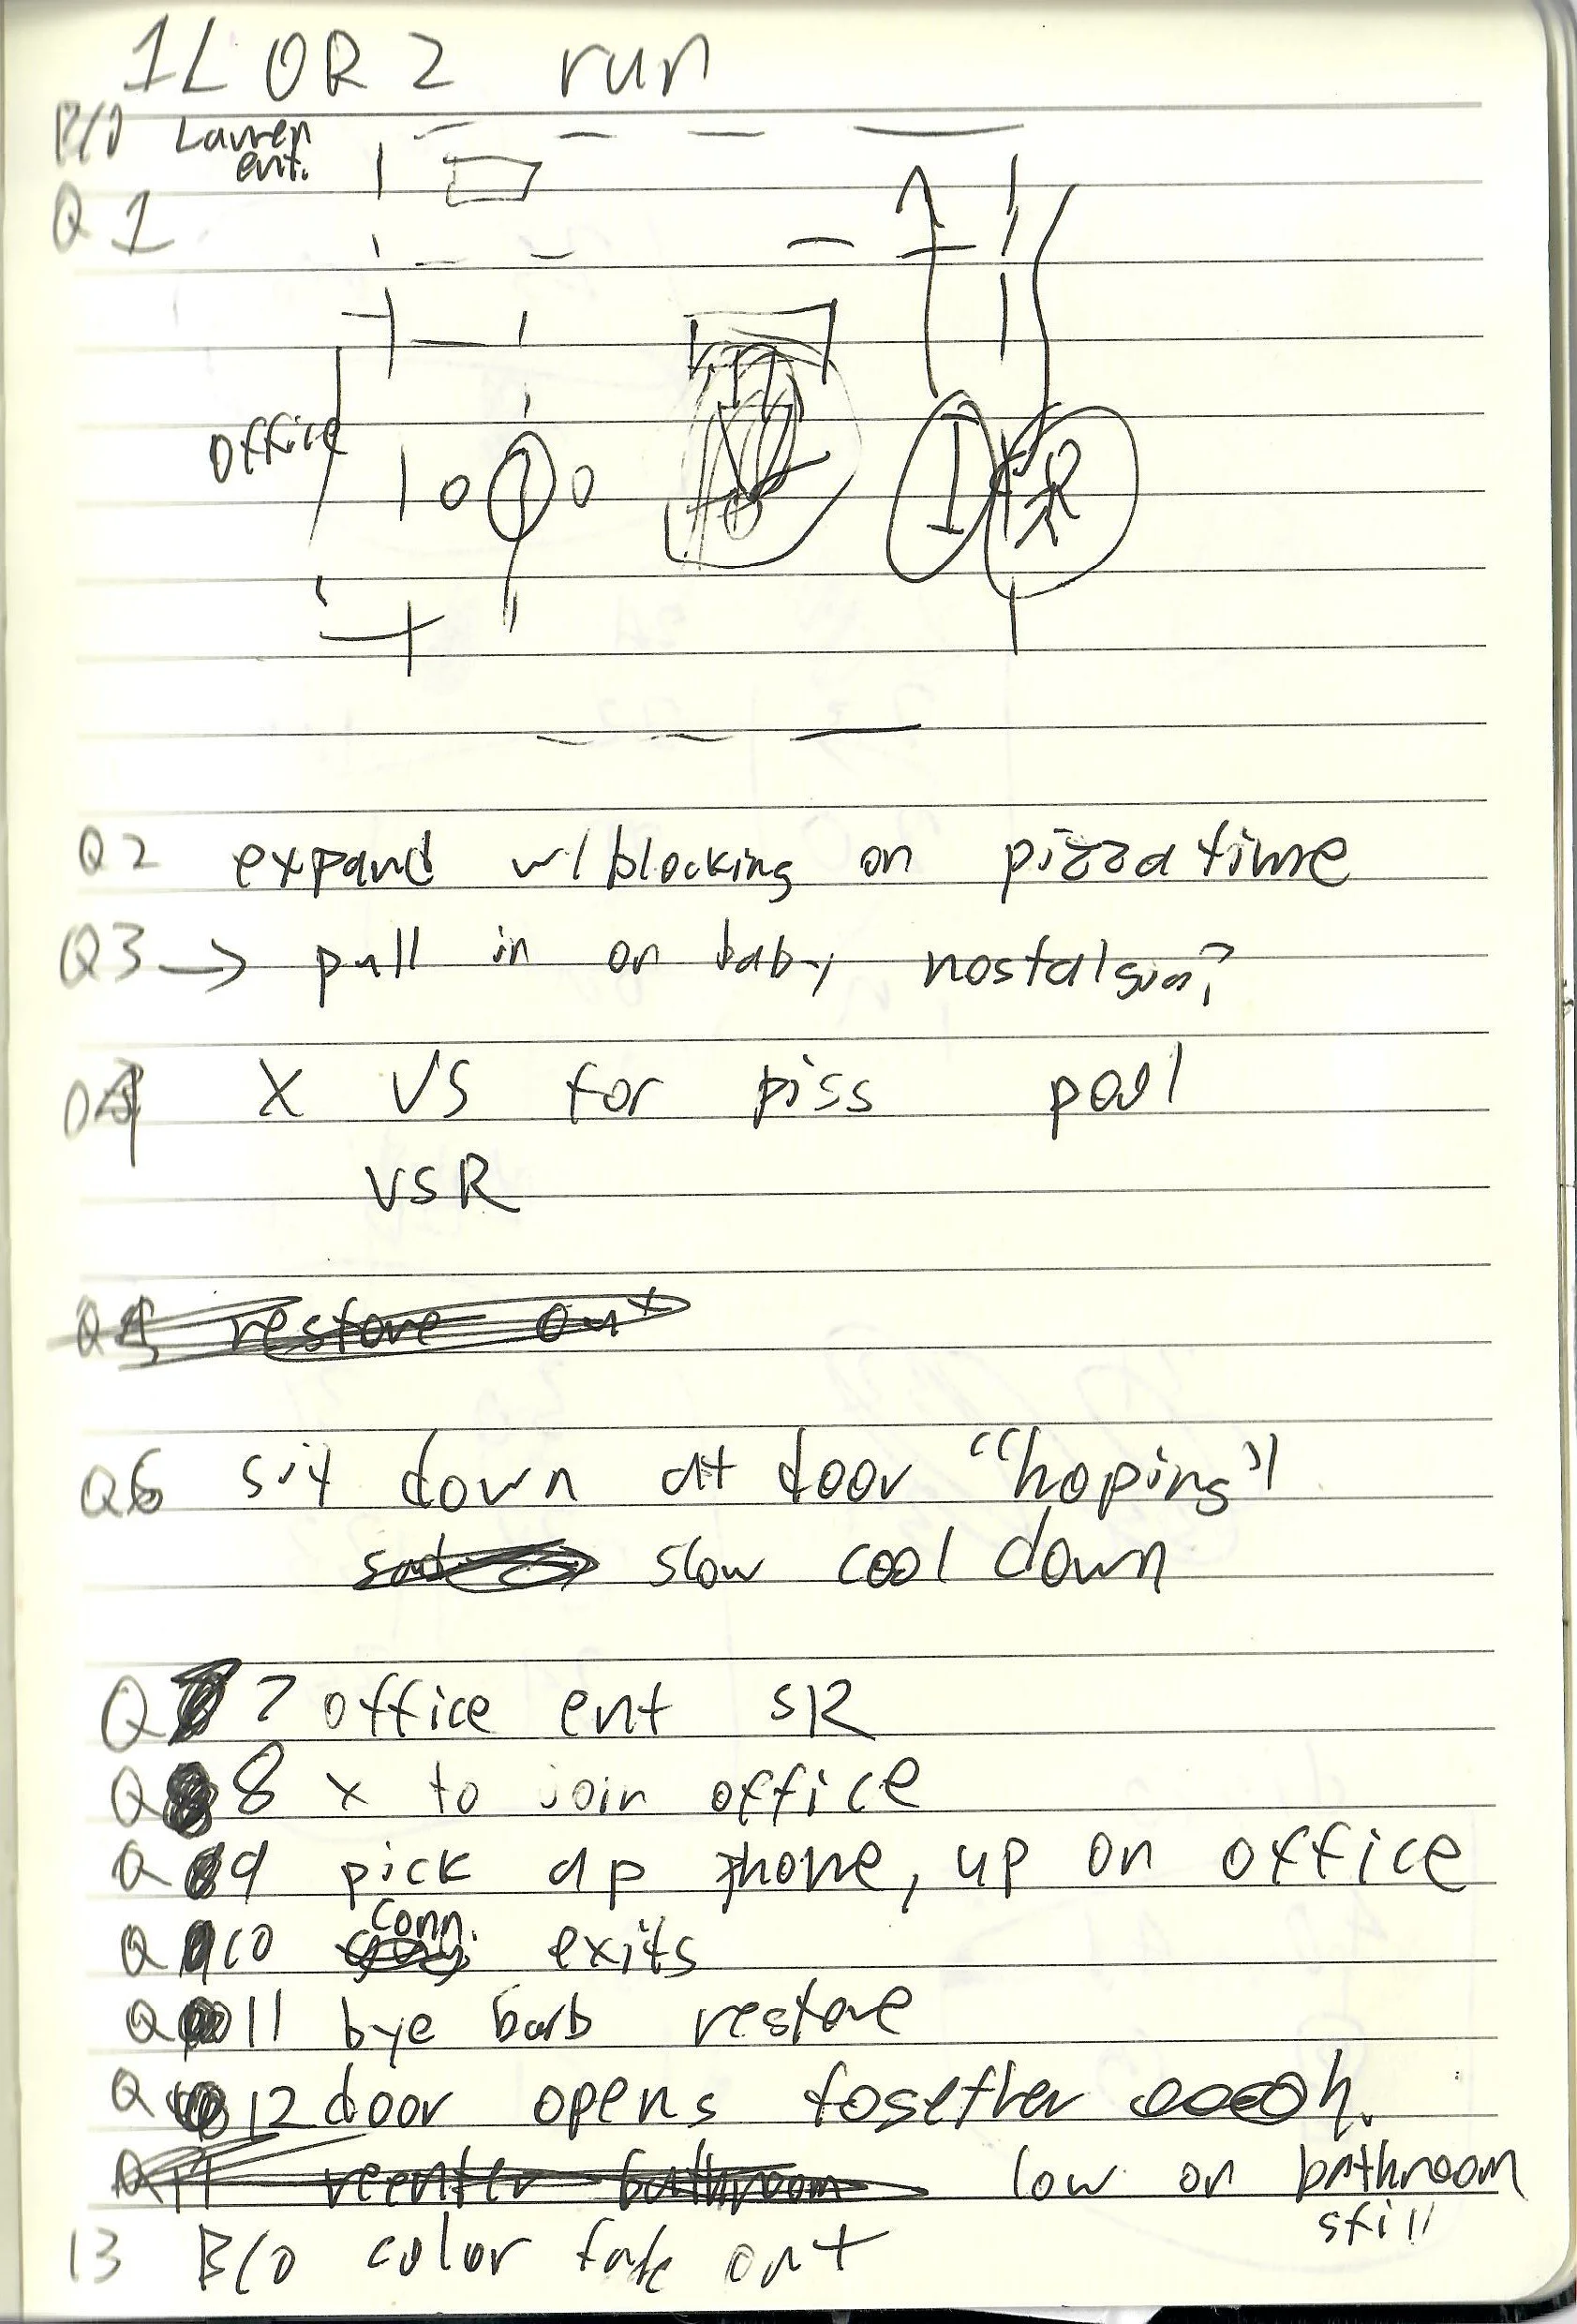 1L OR 2 run
B/O Lauren
ent.
Q 1
office
I
Q2 expand w/ blocking on pizza time
Q3 → pull in on baby nostalgia?
Q4 X VS for piss pool
VSR
restore out
Q6 sit down at door "hoping"
slow cool down
Q 7 office ent SR
Q 8 x to join office
Q 9 pick up phone, up on office
Conn.
Q 10 exits
Q 11 bye barb restore
Q 12 door opens together ooooh.
Q11 reenter bathroom low on bathroom
still
13 B/O color fade out